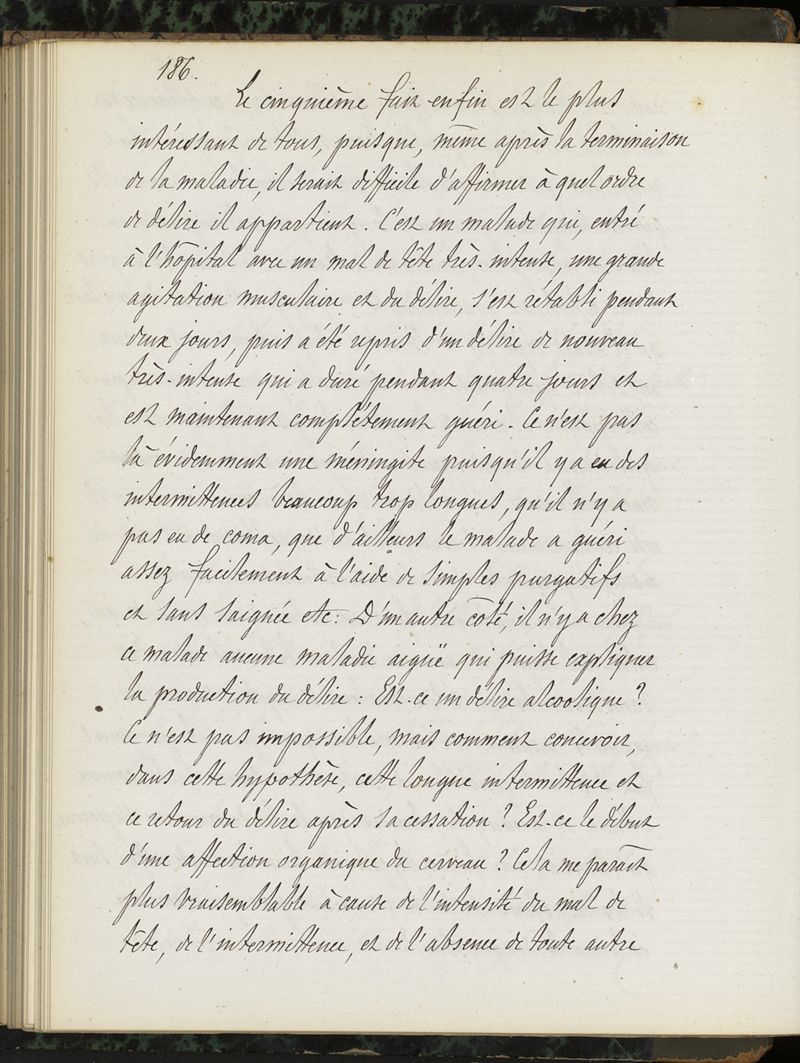 186.
Le cinquième fait enfin est le plus
intéressant de tous, puisque, même après la terminaison
de la maladie, il serait difficile d'affirmer à quel ordre
de délire il appartient. C'est un malade qui, entré
à l'hôpital avec un mal de tête très-intense, une grande
agitation musculaire et du délire, s'est rétabli pendant
deux jours, puis a été repris d'un délire de nouveau
très-intense qui a duré pendant quatre jours et
est maintenant complétement guéri. Ce n'est pas
là évidemment une méningite puisqu'il y a eu des
intermittences beaucoup trop longues, qu'il n'y a
pas eu de coma, que d'ailleurs le malade a guéri
assez facilement à l'aide de simples purgatifs
et sans saignée etc: D'un autre côté, il n'y a chez
ce malade aucune maladie aigüe qui puisse expliquer
la production du délire : Est-ce un délire alcoolique ?
Ce n'est pas impossible, mais comment concevoir,
dans cette hypothèse, cette longue intermittence et
ce retour du délire après sa cessation ? Est-ce le début
d'une affection organique du cerveau ? Cela me paraît
plus vraisemblable à cause de l'intensité du mal de
tête, de l'intermittence, et de l'absence de toute autre